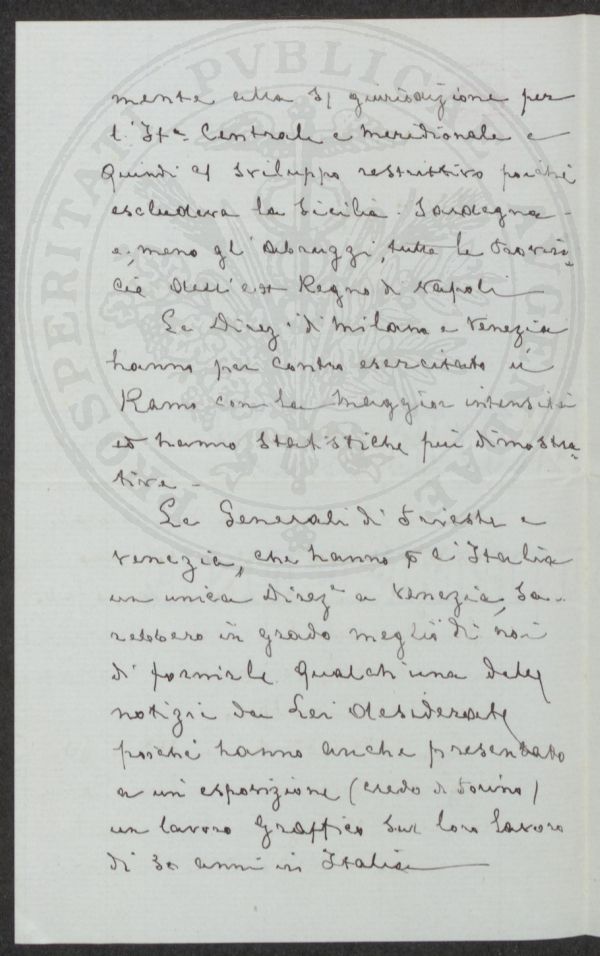 mente alla giurisdizione per
l'Ita Centrale e meridionale e
quindi di sviluppo restrittivo poiché
escludeva la Sicilia - Sardegna -
e, meno gl'Abruzzi, tutte le Provin=
cie dell'ex Regno di Napoli
Le Direzi di Milano e Venezia
hanno per contro esercitato il
Ramo con la maggior intensità
ed hanno statistiche più dimostra=
tive -
Le Generali di Trieste e
Venezia, che hanno p l'Italia
un unica Direze a Venezia, sa-
rebbero in grado meglio di noi
di fornirle qualch'una delle
notizie da Lei desiderate
poiché hanno anche presentato
a un esposizione (credo di Torino)
un lavoro graffico sul loro lavoro
di 30 anni in Italia
PROSPERITATI PUBLICAE AUGENDAE